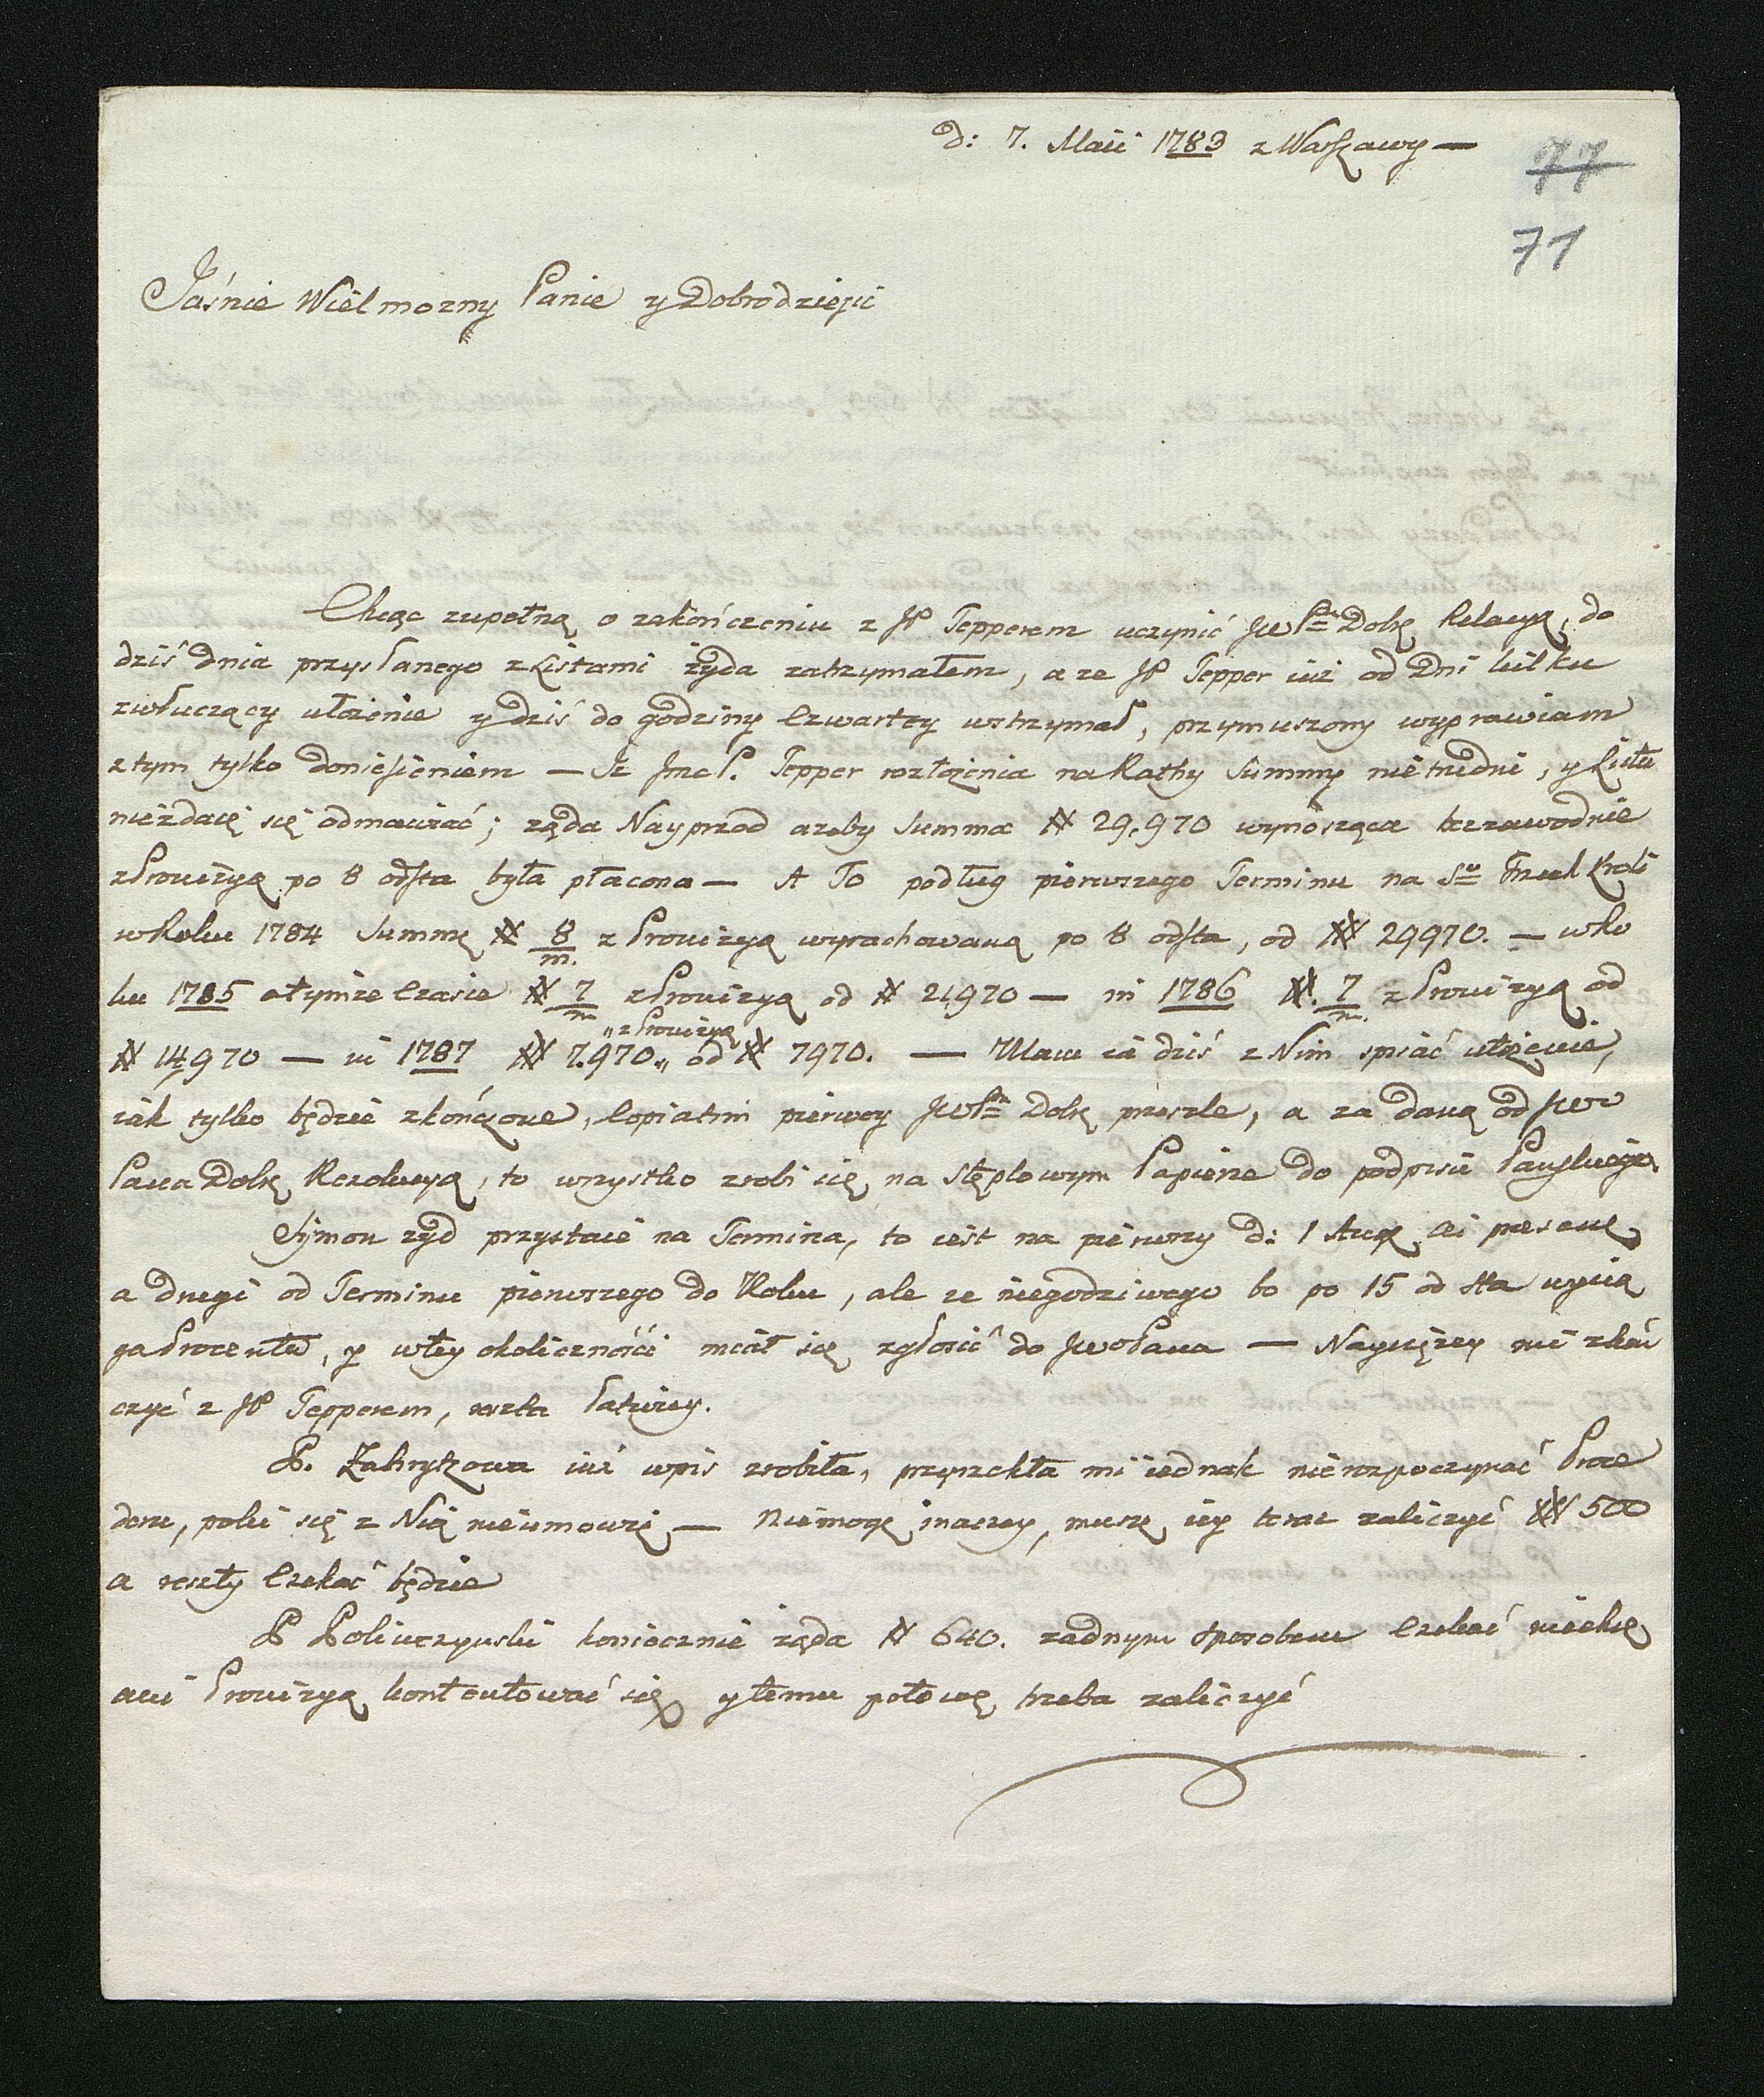 d: 7. Maii 1783 z Warszawy —
77
71
Jaśnie Wielmozny Panie y Dobrodzieju
Chcąc zupełną o zakończeniu z JP Tepperem uczynić JWPa Dobr Relacyą, do
dziś dnia przysłanego z Listami żyda zatrzymałem, a ze JP Tepper iuż od Dni kilku
zwłuczący ułożenie y dziś do godziny Czwartey wstrzymał, przymuszony wyprawiam
z tym tylko doniesieniem — Iż Jmc P. Tepper rozłożenia na Rathy Summy nietrudni, y Listu
niezdaie się odmawiać; ząda Nayprzod azeby Summa # 29,970 wynosząca bezzawodnie
z Prowizyą po 8 odsta była płacona — A To podług pierwszego Terminu na Sw Trzech Kroli
w Roku 1784 Summę # 8/m. z Prowizyą wyrachowaną po 8 odsta, od ## 29970. — w Ro
ku 1785 o tymze Czasie # 7/m z Prowizyą od # 21970 — in 1786 #. 7/m. z Prowizyą od
# 14,970 — in 1787 ## 7.970 „ z Prowizyą „ od # 7970. — Mam ia dziś z Nim spisać ułożenie,
iak tylko będzie zkończone, Copiatim pierwey JWPa Dobr przeszle, a za daną od JWo
Pana Dobr Rezolucyą, to wszystko zrobi się na Stęplowym Papierze do podpisu Pańskiego
Szymon zyd przystaie na Termina, to iest na pierwszy d: 1 Aug ai presene
a drugi od Terminu pierwszego do Roku, ale ze niegodziwego bo po 15 od sta wycią
ga Procentu, y w tey okoliczności miał się zgłosić do JWo Pana — Nayciężey mi zkoń
czyć z JP Tepperem, reszta łatwiey.
P. Zakrytzowa iuż wpis zrobiła, przyrzekła mi iednak nierozpoczynać Proce
deru, poki się z Nią nieumowię — Niemogę inaczey, muszę iey teraz zaliczyć ## 500
a reszty Czekać będzie
P Poliwczynski koniecznie ząda # 640. zadnym sposobem Czekać niechce
ani Prowizyą kontentować się y temu połowę trzeba zaliczyć